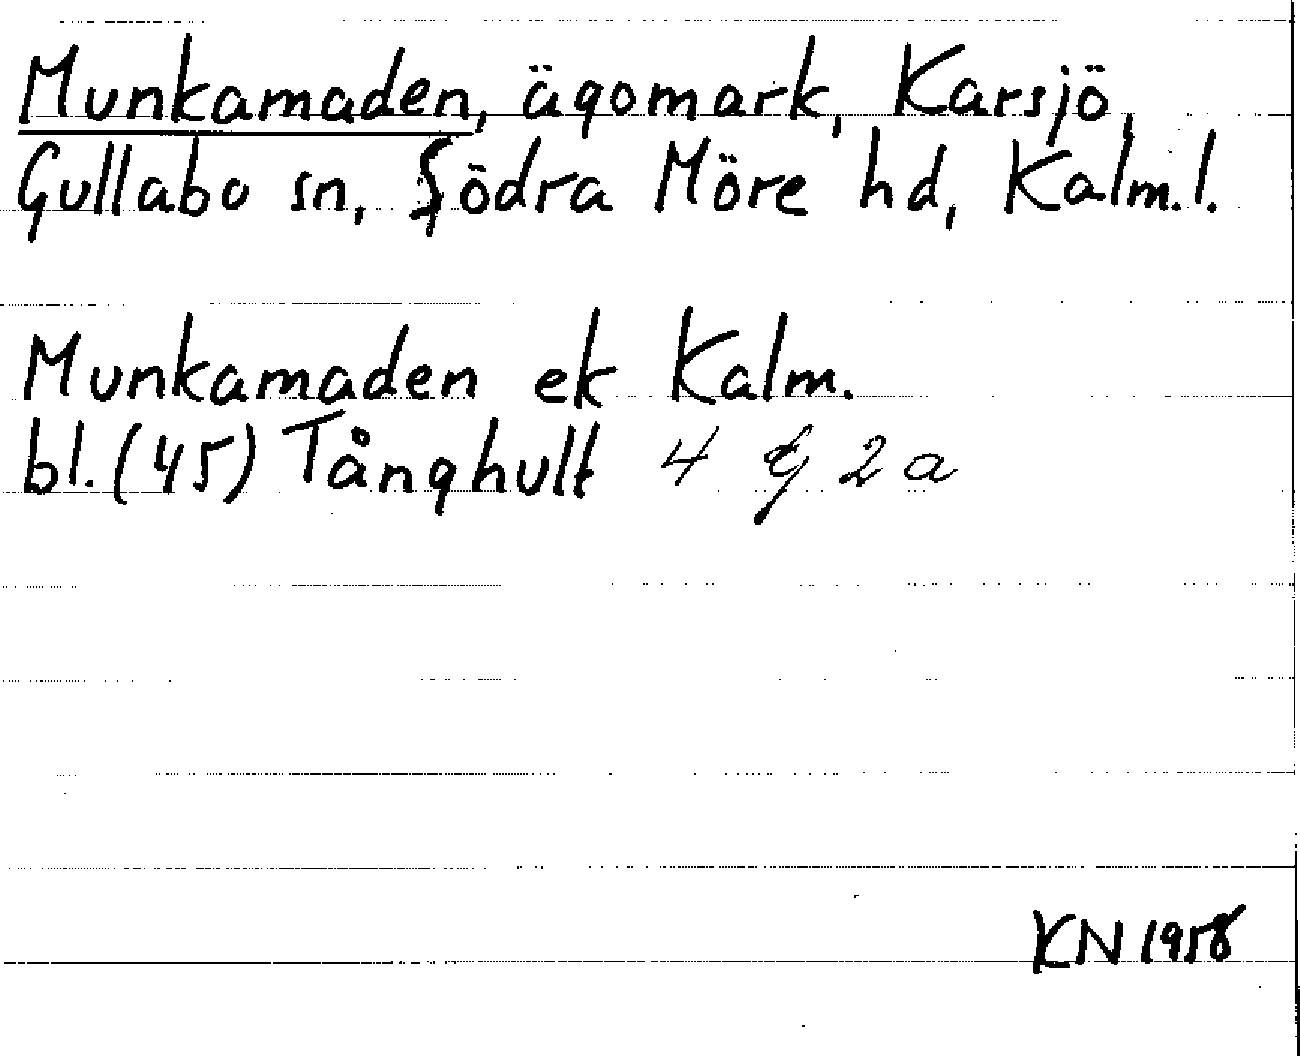 Munkamaden, ägomark, Karsjö,
Gullabo sn, Södra Möre hd, Kalm.l.
Munkamaden ek Kalm.
bl. (45) Tånghult 4 G 2 a
KN 1958